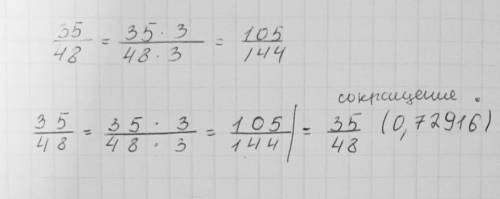 35/48 = 35 · 3/48 · 3 = 105/144
сокращение .
35/48 = 35 · 3/48 · 3 = 105/144 | = 35/48 (0,72916)